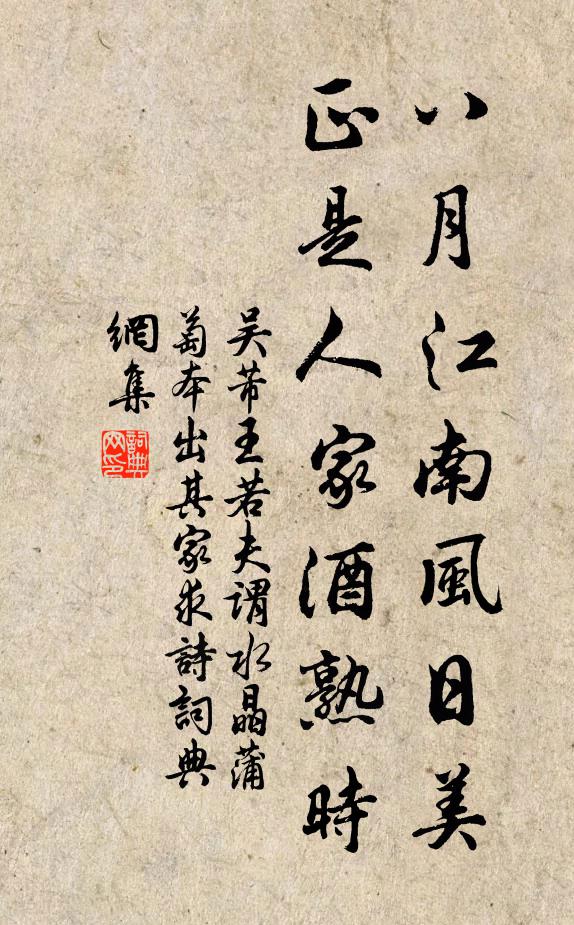 八月江南風日美
正是人家酒熟時
吳芾王若夫謂水晶蒲
萄本出其家求詩詞典
網集
詞典网印